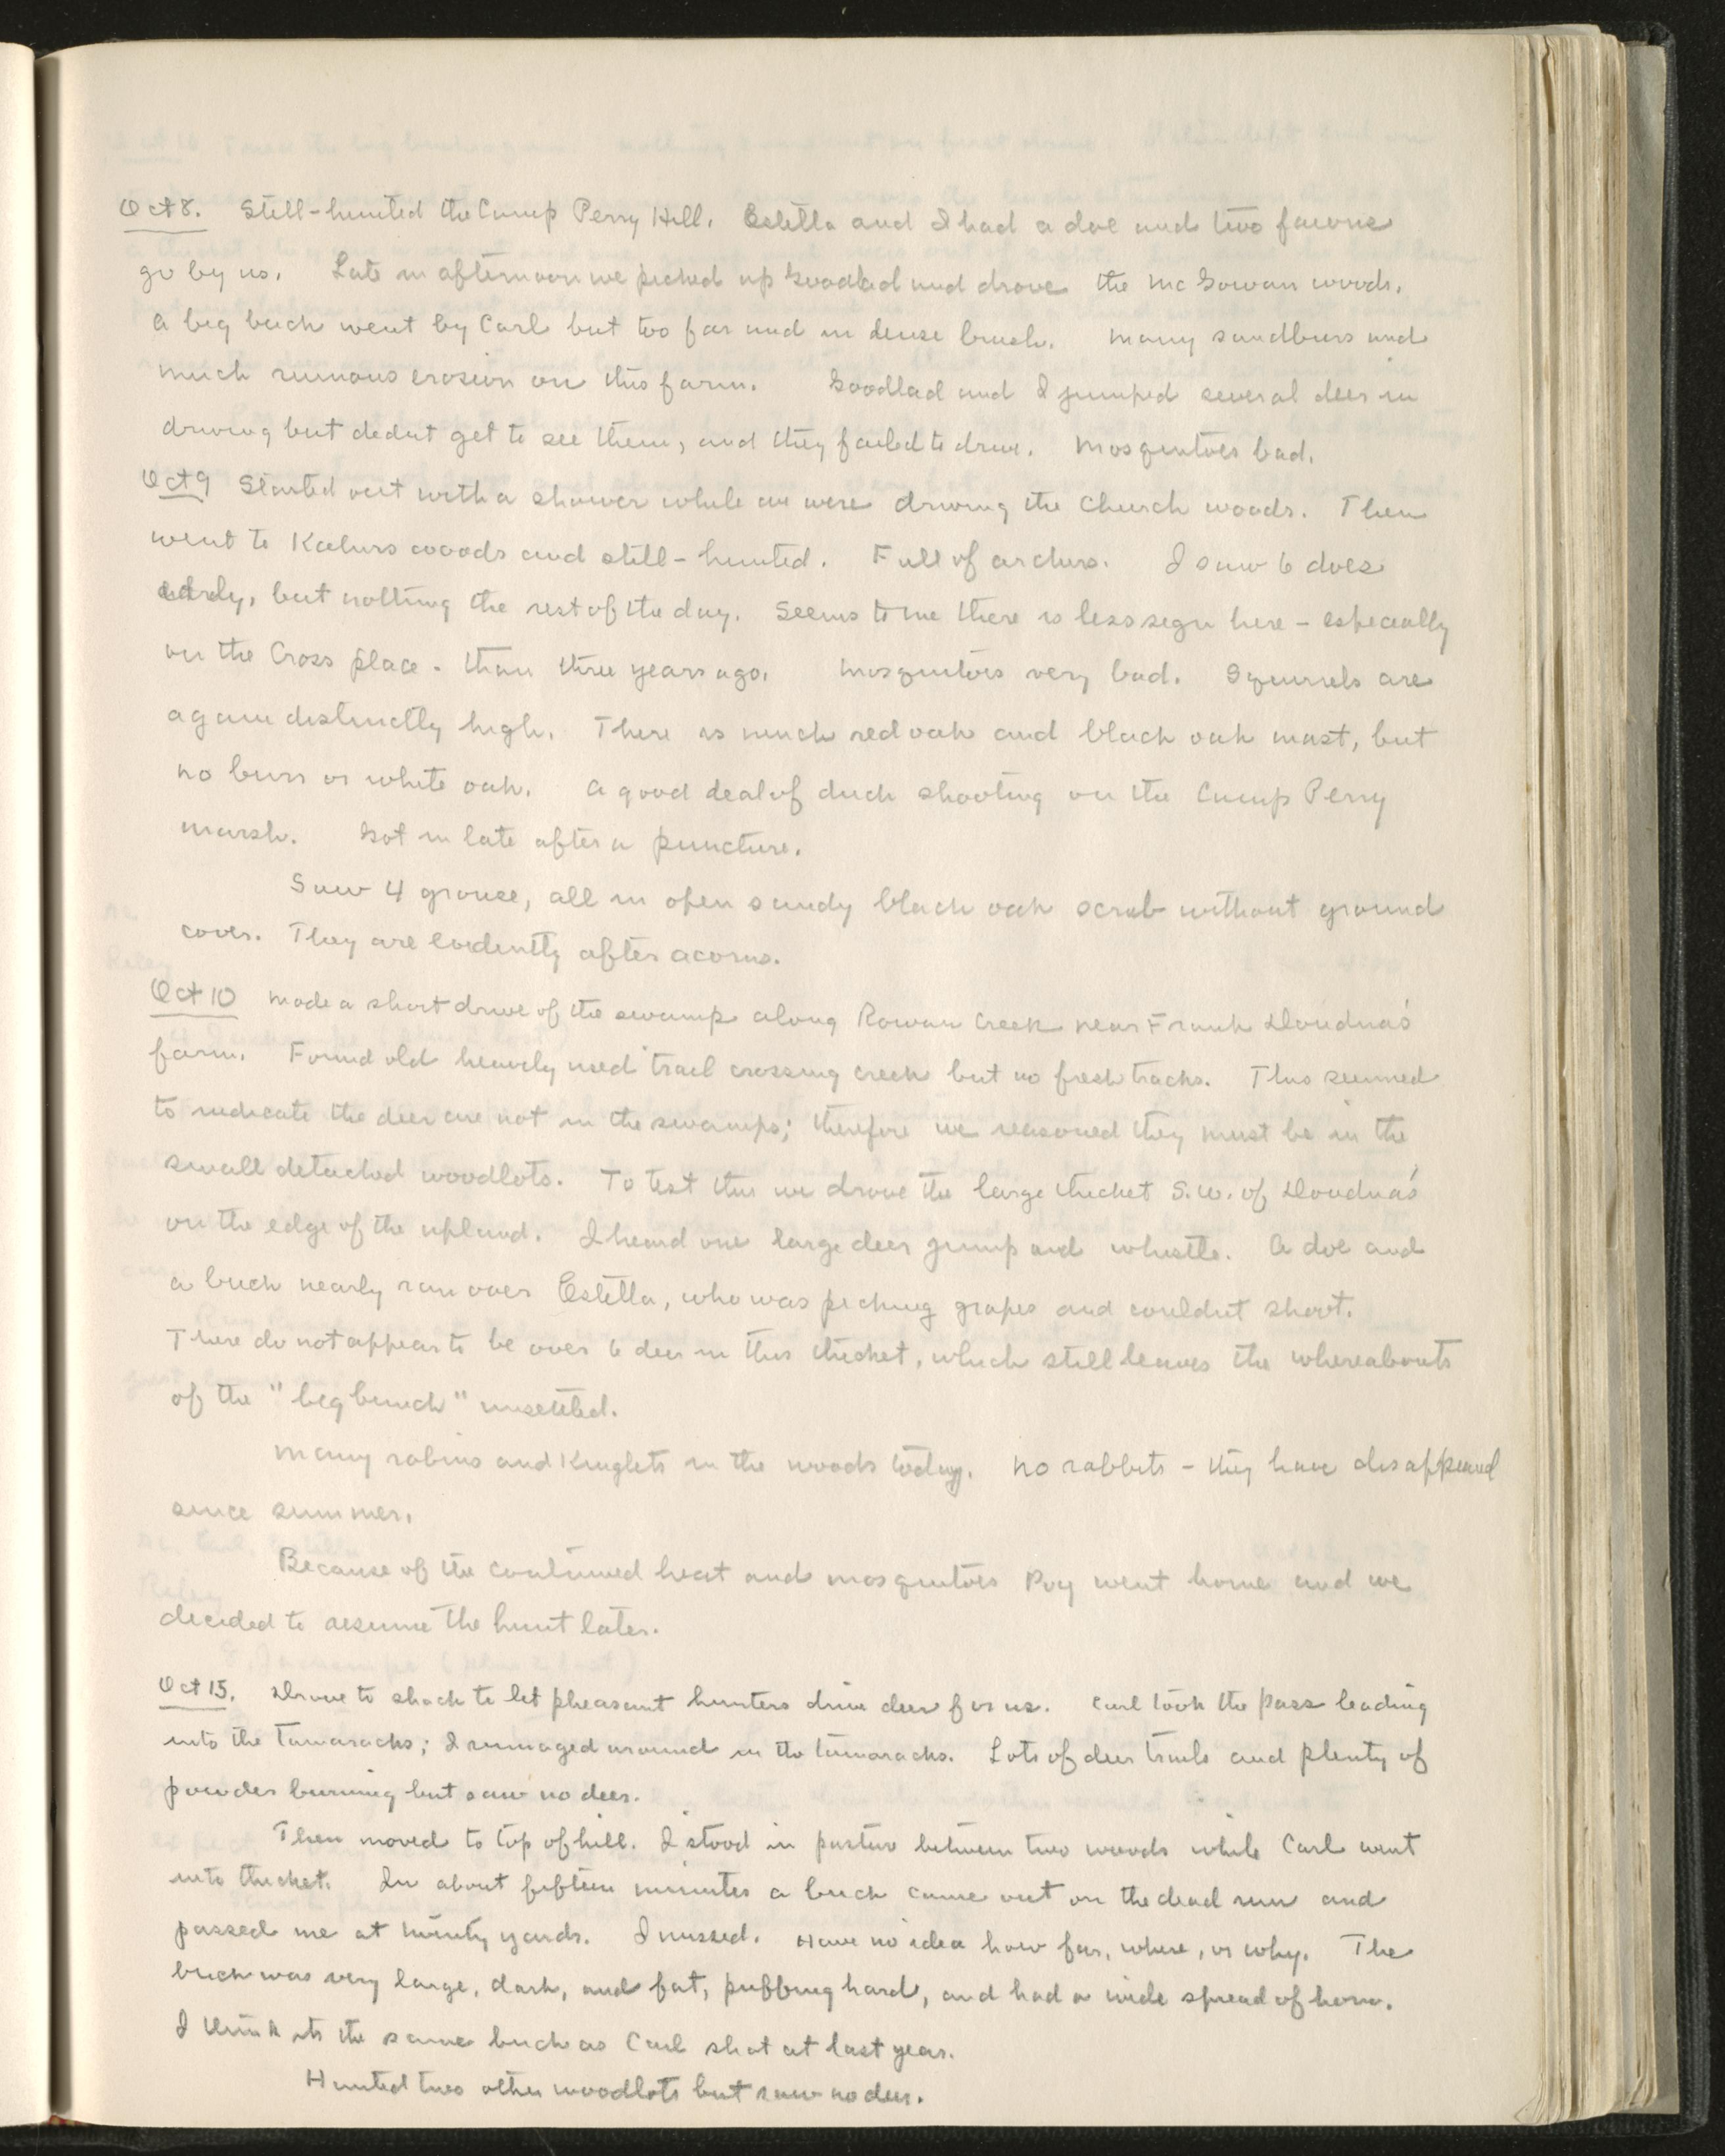 Oct 8. Still-hunted the Camp Perry Hill. Estella and I had a doe and two fawns
go by us. Late in afternoon we picked up Goodlad and drove the McGowan woods.
A big buck went by Carl but too far and in dense brush. Many sandburs and
much ruinous erosion on this farm. Goodlad and I jumped several deer in
driving but didnt get to see them, and they failed to drive. Mosquitoes bad.
Oct 9 Started out with a shower while we were driving the Church woods. Then
went to Kahns woods and still-hunted. Full of archers. I saw 6 does
early, but nothing the rest of the day. Seems to me there is less sign here - especially
on the Cross place - than three years ago. Mosquitoes very bad. Squirrels are
again distinctly high. There is much red oak and black oak mast, but
no burr or white oak. A good deal of duck shooting on the Camp Perry
marsh. Got in late after a puncture.
Saw 4 grouse, all in open sandy black oak scrub without ground
cover. They are evidently after acorns.
Oct 10 Made a short drive of the swamp along Rowan Creek near Frank Doudna's
farm. Found old heavily used trail crossing creek but no fresh tracks. This seemed
to indicate the deer are not in the swamps; therefore we reasoned they must be in the
small detached woodlots. To test this we drove the large thicket S.W. of Doudna's
on the edge of the upland. I heard one large deer jump and whistle. A doe and
a buck nearly ran over Estella, who was picking grapes and couldnt shoot.
There do not appear to be over 6 deer in this thicket, which still leaves the whereabouts
of the "big bunch" unsettled.
Many robins and Kinglets in the woods today. No rabbits - they have disappeared
since summer.
Because of the continued heat and mosquitoes Roy went home and we
decided to resume the hunt later.
Oct 15. Drove to shack to let pheasant hunters drive deer for us. Carl took the pass leading
into the Tamaracks; I rummaged around in the tamaracks. Lots of deer trails and plenty of
powder burning but saw no deer.
Then moved to top of hill. I stood in pasture between two woods while Carl went
into thicket. In about fifteen minutes a buck came out on the dead run and
passed me at ninety yards. I missed. Have no idea how far, where, or why. The
buck was very large, dark, and fat, puffing hard, and had a wide spread of horn.
I think its the same buck as Carl shot at last year.
Hunted two other woodlots but saw no deer.